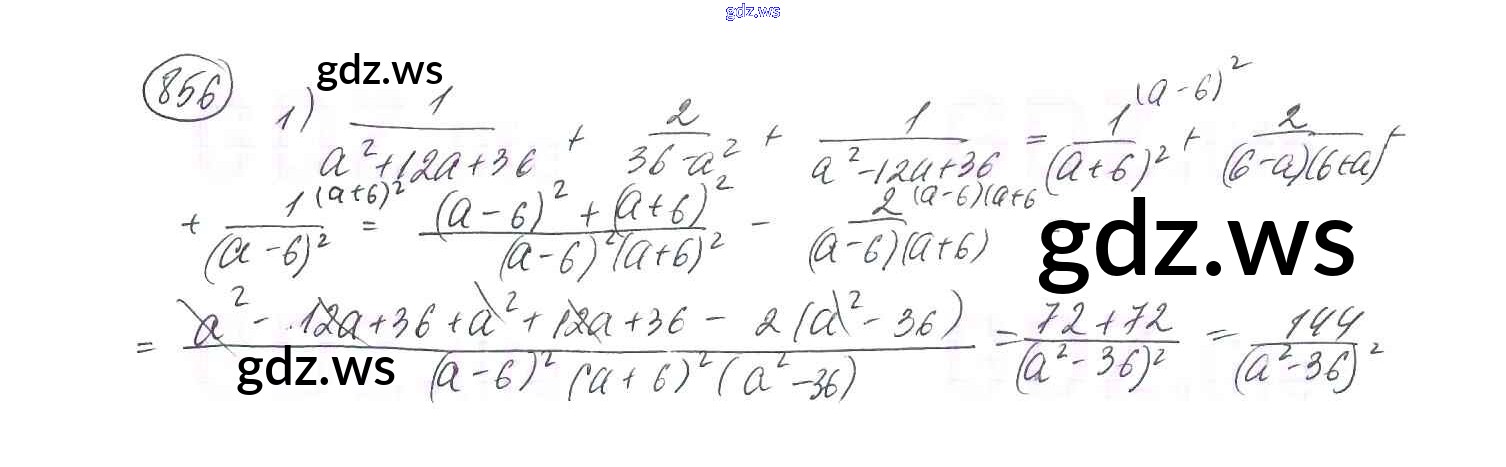 gdz.ws
856 gdz.ws
1) 1/(a²+12a+36) + 2/(36-a²) + 1/(a²-12a+36) = 1^((a-6)²)/(a+6)² + 2/((6-a)(6+a)) +
+ 1^((a+6)²)/(a-6)² = ((a-6)²+(a+6)²)/((a-6)²(a+6)²) - 2^((a-6)(a+6)/((a-6)(a+6)) gdz.ws
= (a²-12a+36+a²+12a+36-2(a²-36))/((a-6)²(a+6)²(a²-36)) = (72+72)/(a²-36)² = 144/(a²-36)²
gdz.ws